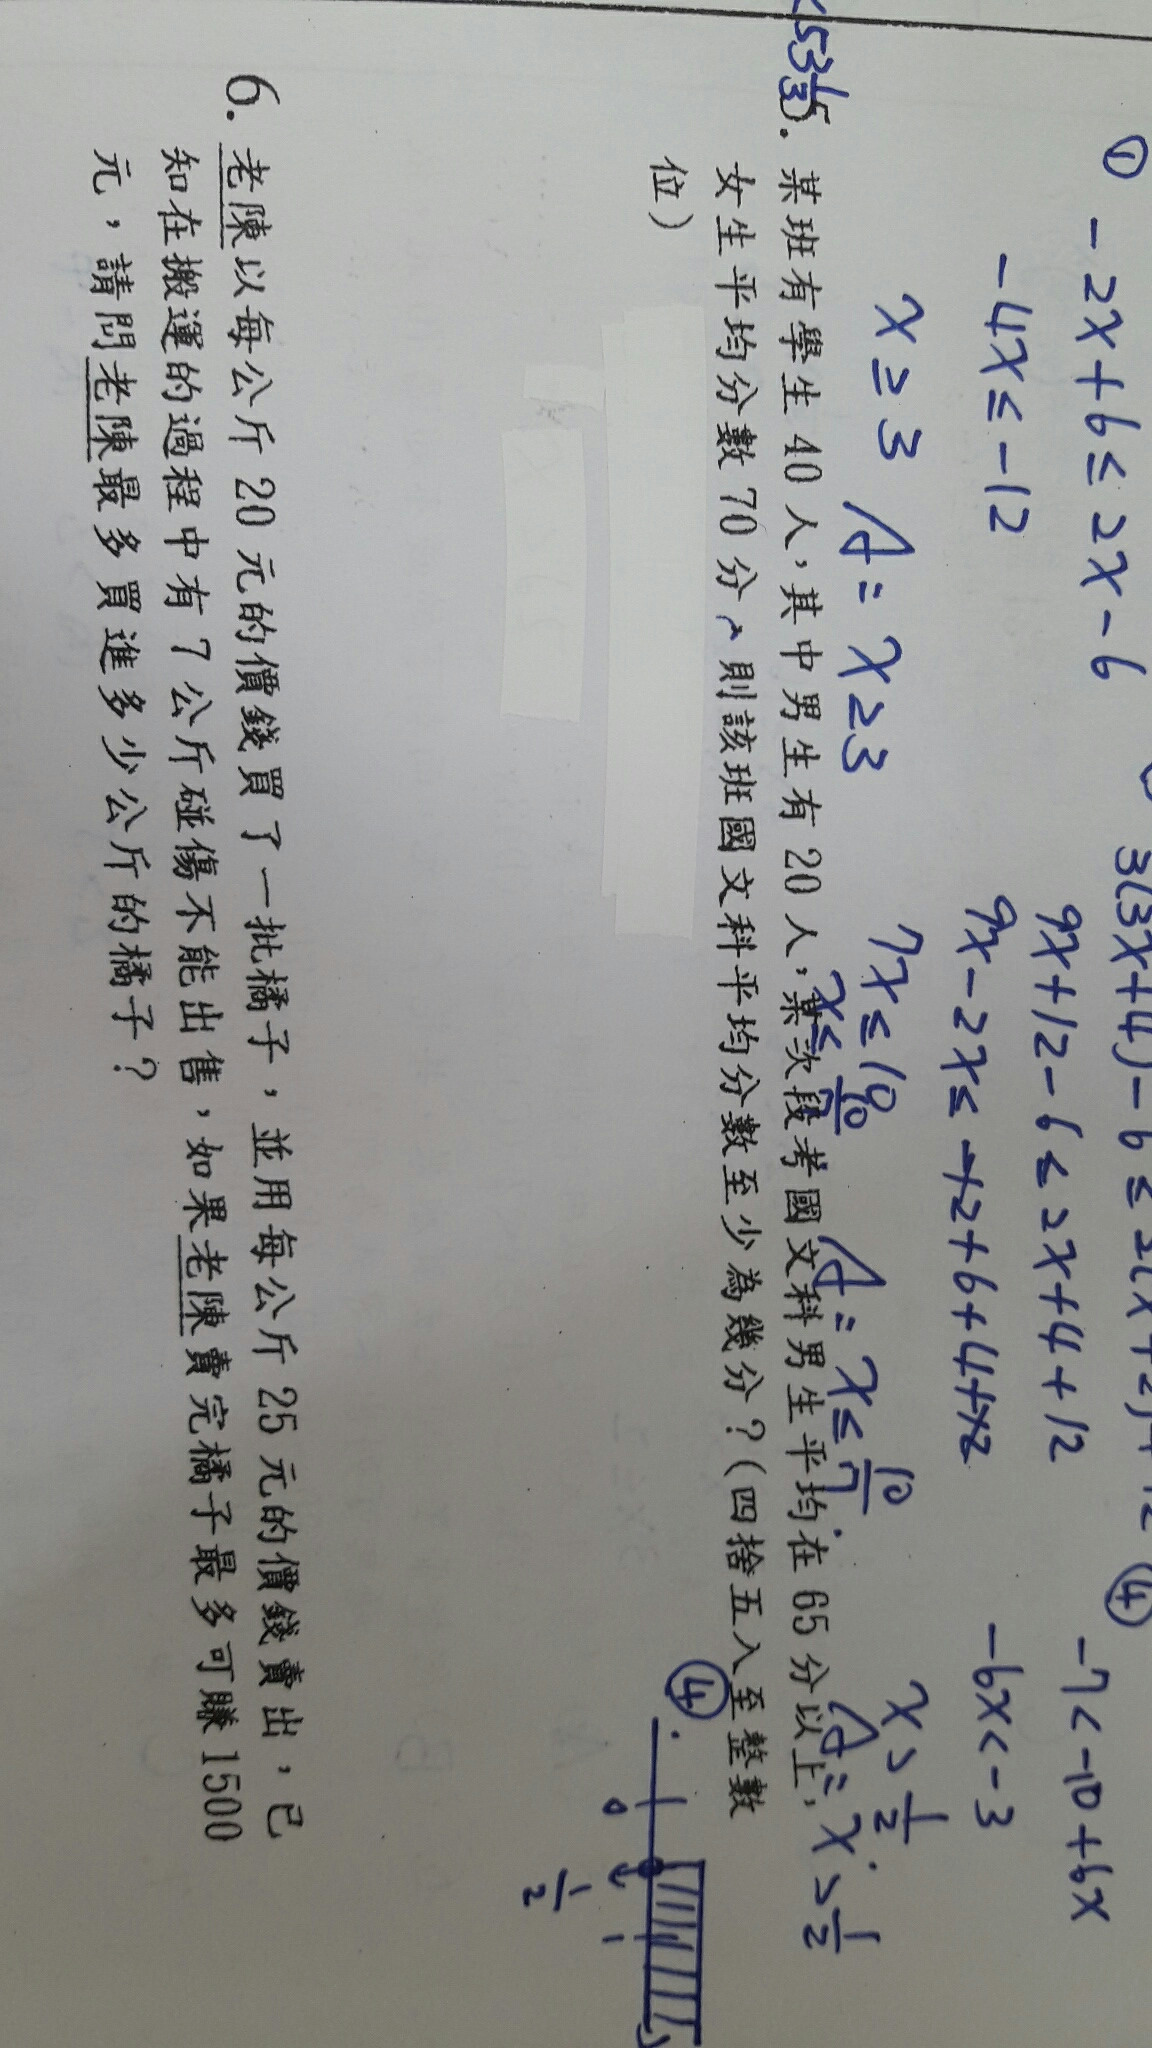 ① -2x+6≤2x-6
-4x≤-12
x≥3 A=x≥3
3(3x+4)-6≤2(x+2)+12
9x+12-6≤2x+4+12
9x-2x≤-12+6+4+12
7x≤10
x≤10/7 A=x≤10/7
④ -7<-10+6x
-6x<-3
x>1/2 A=x>1/2
<53 1/3
5. 某班有學生 40 人，其中男生有 20 人，某次段考國文科男生平均在 65 分以上，
女生平均分數 70 分，則該班國文科平均分數至少為幾分？(四捨五入至整數
位)
④
0 1/2 1
6. 老陳以每公斤 20 元的價錢買了一批橘子，並用每公斤 25 元的價錢賣出，已
知在搬運的過程中有 7 公斤碰傷不能出售，如果老陳賣完橘子最多可賺 1500
元，請問老陳最多買進多少公斤的橘子？